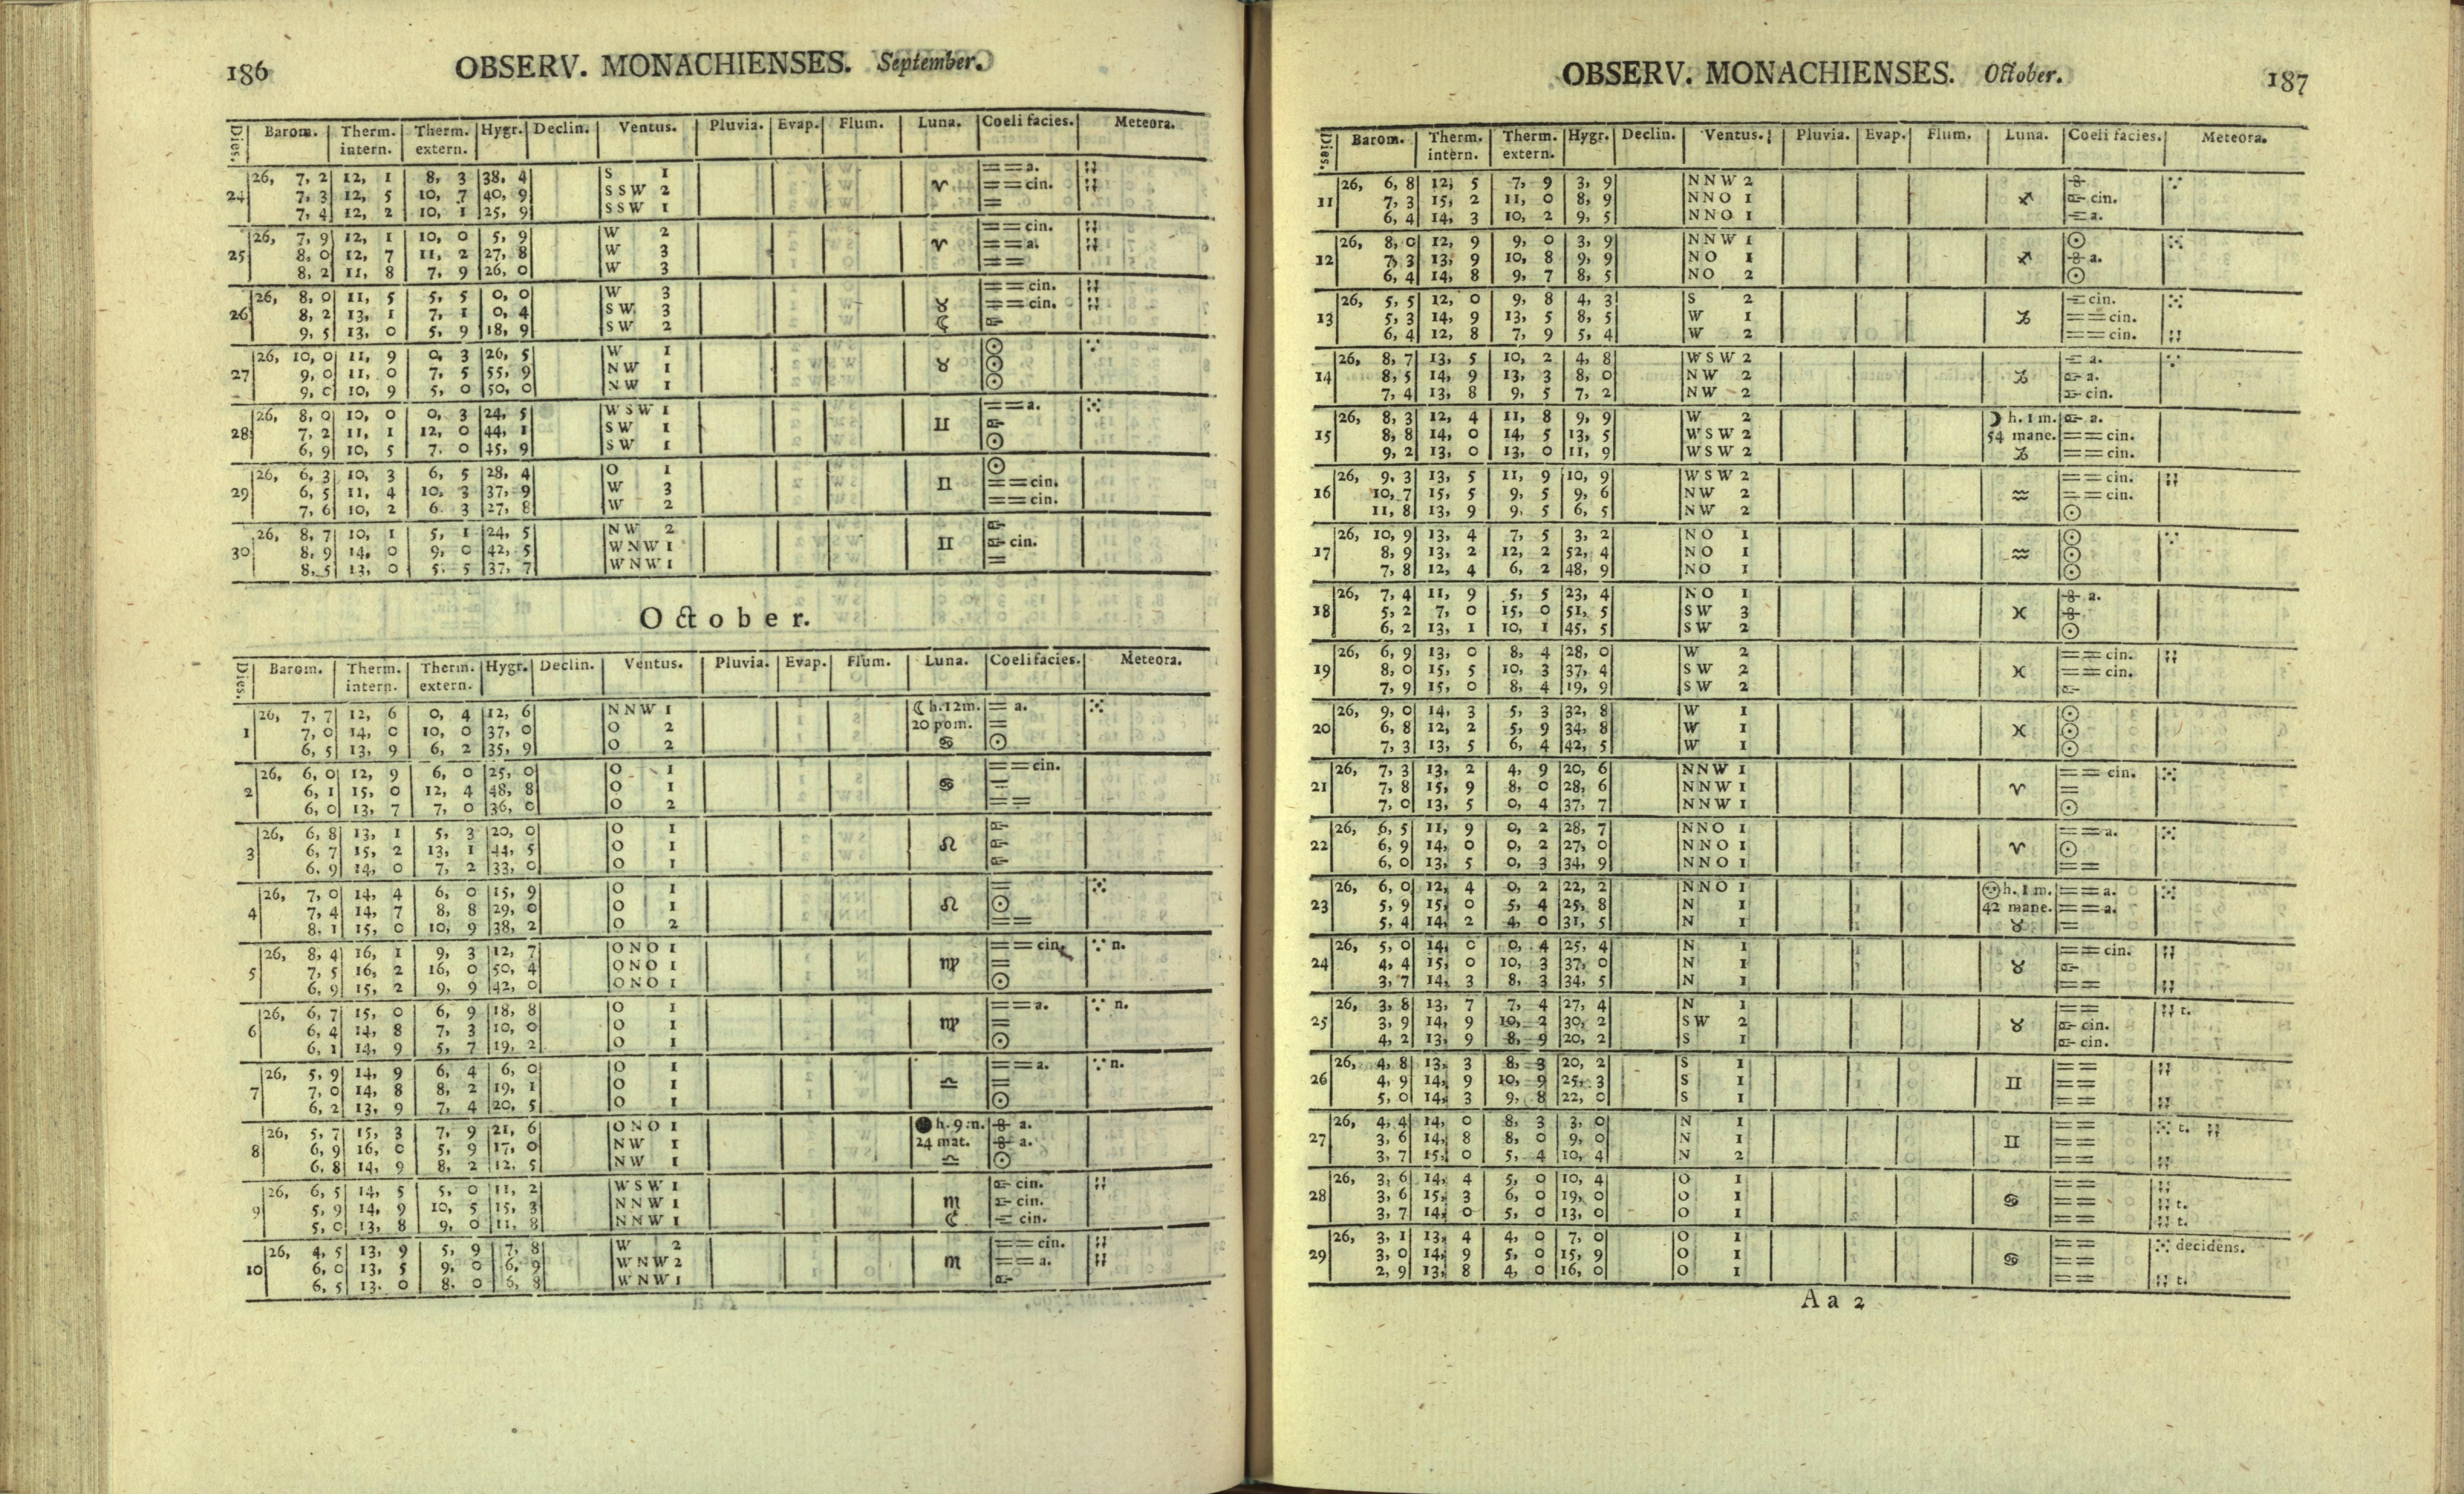 186 OBSERV. MONACHIENSES. September.
Dies. Barom. Therm. Therm. Hygr. Declin. Ventus. Pluvia. Evap. Flum. Luna. Coeli facies. Meteora.
intern. extern.
26, 7, 2 12, 1 8, 3 38, 4 S 1 == a. ¦¦
24 7, 3 12, 5 10, 7 40, 9 SSW 2 ♈ == cin. ¦¦
7, 4 12, 2 10, 1 25, 9 SSW 1 =
26, 7, 9 12, 1 10, 0 5, 9 W 2 == cin. ¦¦
25 8, 0 12, 7 11, 2 27, 8 W 3 ♈ == a. ¦¦
8, 2 11, 8 7, 9 26, 0 W 3 ==
26, 8, 0 11, 5 5, 5 0, 0 W 3 == cin. ¦¦
26 8, 2 13, 1 7, 1 0, 4 SW 3 ♉ == cin. ¦¦
9, 5 13, 0 5, 9 18, 9 SW 2 ☾
26, 10, 0 11, 9 0, 3 26, 5 W 1 ☉ ∵
27 9, 0 11, 0 7, 5 55, 9 NW 1 ♉ ☉
9, 0 10, 9 5, 0 50, 0 NW 1 ☉
26, 8, 0 10, 0 0, 3 24, 5 WSW 1 == a. ⁙
28 7, 2 11, 1 12, 0 44, 1 SW 1 ♊
6, 9 10, 5 7. 0 45, 9 SW 1 ☉
26, 6, 3 10, 3 6, 5 28, 4 O 1 ☉
29 6, 5 11, 4 10, 3 37, 9 W 3 ♊ == cin.
7, 6 10, 2 6. 3 27, 8 W 2 == cin.
26, 8, 7 10, 1 5, 1 24, 5 NW 2
30 8, 9 14, 0 9, 0 42, 5 WNW 1 ♊ cin.
8, 5 13, 0 5. 5 37, 7 WNW 1 =
October.
Dies. Barom. Therm. Therm. Hygr. Declin. Ventus. Pluvia. Evap. Flum. Luna. Coeli facies. Meteora.
intern. extern.
26, 7, 7 12, 6 0, 4 12, 6 NNW 1 ☾ h. 12 m. = a. ⁙
1 7, 0 14, 0 10, 0 37, 0 O 2 20 pom. =
6, 5 13, 9 6, 2 35, 9 O 2 ♋ ☉
26, 6, 0 12, 9 6, 0 25, 0 O 1 == cin.
2 6, 1 15, 0 12, 4 48, 8 O 1 ♋ =
6, 0 13, 7 7, 0 36, 0 O 2 ==
26, 6, 8 13, 1 5, 3 20, 0 O 1
3 6, 7 15, 2 13, 1 44, 5 O 1 ♌
6. 9 14, 0 7, 2 33, 0 O 1
26, 7, 0 14, 4 6, 0 15, 9 O 1 = ⁙
4 7, 4 14, 7 8, 8 29, 0 O 1 ♌ ☉
8, 1 15, 0 10, 9 38, 2 O 2 ==
26, 8, 4 16, 1 9, 3 12, 7 ONO 1 == cin. ∵ n.
5 7, 5 16, 2 16, 0 50, 4 ONO 1 ♍ =
6, 9 15, 2 9, 9 42, 0 ONO 1 ☉
26, 6, 7 15, 0 6, 9 18, 8 O 1 == a. ∵ n.
6 6, 4 14, 8 7, 3 10, 0 O 1 ♍ =
6, 1 14, 9 5, 7 19, 2 O 1 ☉
26, 5, 9 14, 9 6, 4 6, 0 O 1 == a. ∵ n.
7 7, 0 14, 8 8, 2 19, 1 O 1 ♎ =
6, 2 13, 9 7, 4 20, 5 O 1 ☉
26, 5, 7 15, 3 7, 9 21, 6 ONO 1 ● h. 9 m. a.
8 6, 9 16, 0 5, 9 17, 0 NW 1 24 mat. a.
6, 8 14, 9 8, 2 12, 5 NW 1 ♎ ☉
26, 6, 5 14, 5 5, 0 11, 2 WSW 1 cin. ¦¦
9 5, 9 14, 9 10, 5 15, 3 NNW 1 ♏ cin.
5, 0 13, 8 9, 0 11, 8 NNW 1 ☾ cin.
26, 4, 5 13, 9 5, 9 7, 8 W 2 == cin. ¦¦
10 6, 0 13, 5 9, 0 6, 9 WNW 2 ♏ == a. ¦¦
6, 5 13. 0 8. 0 6, 8 WNW 1
OBSERV. MONACHIENSES. October. 187
Dies. Barom. Therm. Therm. Hygr. Declin. Ventus. Pluvia. Evap. Flum. Luna. Coeli facies. Meteora.
intern. extern.
26, 6, 8 12, 5 7, 9 3, 9 NNW 2 ∵
11 7, 3 15, 2 11, 0 8, 9 NNO 1 ♐ cin.
6, 4 14, 3 10, 2 9, 5 NNO 1 a.
26, 8, 0 12, 9 9, 0 3, 9 NNW 1 ☉ ⁙
12 7, 3 13, 9 10, 8 9, 9 NO 1 ♐ a.
6, 4 14, 8 9, 7 8, 5 NO 2 ☉
26, 5, 5 12, 0 9, 8 4, 3 S 2 cin. ⁙
13 5, 3 14, 9 13, 5 8, 5 W 1 ♑ == cin.
6, 4 12, 8 7, 9 5, 4 W 2 == cin. ¦¦
26, 8, 7 13, 5 10, 2 4, 8 WSW 2 a. ∵
14 8, 5 14, 9 13, 3 8, 0 NW 2 ♑ a.
7, 4 13, 8 9, 5 7, 2 NW 2 cin.
26, 8, 3 12, 4 11, 8 9, 9 W 2 ☽ h. 1 m. a.
15 8, 8 14, 0 14, 5 13, 5 WSW 2 54 mane. == cin.
9, 2 13, 0 13, 0 11, 9 WSW 2 ♑ == cin.
26, 9. 3 13, 5 11, 9 10, 9 WSW 2 == cin. ¦¦
16 10, 7 15, 5 9, 5 9, 6 NW 2 ♒ == cin.
11, 8 13, 9 9. 5 6, 5 NW 2 ☉
26, 10, 9 13, 4 7, 5 3, 2 NO 1 ☉ ∵
17 8, 9 13, 2 12, 2 52, 4 NO 1 ♒ ☉
7, 8 12, 4 6, 2 48, 9 NO 1 ☉
26, 7, 4 11, 9 5, 5 23, 4 NO 1 a.
18 5, 2 7, 0 15, 0 51, 5 SW 3 ♓
6, 2 13, 1 10, 1 45, 5 SW 2 ☉
26, 6, 9 13, 0 8, 4 28, 0 W 2 == cin. ¦¦
19 8, 0 15, 5 10, 3 37, 4 SW 2 ♓ == cin.
7, 9 15, 0 8, 4 19, 9 SW 2
26, 9, 0 14, 3 5, 3 32, 8 W 1 ☉
20 6, 8 12, 2 5, 9 34, 8 W 1 ♓ ☉
7, 3 13, 5 6, 4 42, 5 W 1 ☉
26, 7, 3 13, 2 4, 9 20, 6 NNW 1 == cin. ⁙
21 7, 8 15, 9 8, 0 28, 6 NNW 1 ♈ =
7, 0 13, 5 0, 4 37, 7 NNW 1 ☉
26, 6, 5 11, 9 0, 2 28, 7 NNO 1 == a. ⁙
22 6, 9 14, 0 0, 2 27, 0 NNO 1 ♈ ☉
6, 0 13, 5 0, 3 34, 9 NNO 1 ==
26, 6, 0 12, 4 0, 2 22, 2 NNO 1 h. 1 m. == a. ⁙
23 5, 9 15, 0 5, 4 25, 8 N 1 42 mane. == a.
5, 4 14, 2 4, 0 31, 5 N 1 ♉ =
26, 5, 0 14, 0 0, 4 25, 4 N 1 == cin. ¦¦
24 4, 4 15, 0 10, 3 37, 0 N 1 ♉
3, 7 14, 3 8, 3 34, 5 N 1 == ¦¦
26, 3, 8 13, 7 7, 4 27, 4 N 1 == ¦¦ t.
25 3, 9 14, 9 10, 2 30, 2 SW 2 ♉ cin.
4, 2 13, 9 8, 9 20, 2 S 1 cin.
26, 4, 8 13, 3 8, 3 20, 2 S 1 == ¦¦
26 4, 9 14, 9 10, 9 25, 3 S 1 ♊ ==
5, 0 14, 3 9, 8 22, 0 S 1 == ¦¦
26, 4, 4 14, 0 8, 3 3, 0 N 1 == ⁙ t. ¦¦
27 3, 6 14, 8 8, 0 9, 0 N 1 ♊ ==
3, 7 15, 0 5, 4 10, 4 N 2 == ¦¦
26, 3, 6 14, 4 5, 0 10, 4 O 1 == ¦¦
28 3, 6 15, 3 6, 0 19, 0 O 1 ♋ == ¦¦ t.
3, 7 14, 0 5, 0 13, 0 O 1 == ¦¦ t.
26, 3, 1 13, 4 4, 0 7, 0 O 1 == ⁙ decidens.
29 3, 0 14, 9 5, 0 15, 9 O 1 ♋ ==
2, 9 13, 8 4, 0 16, 0 O 1 == ¦¦ t.
Aa 2